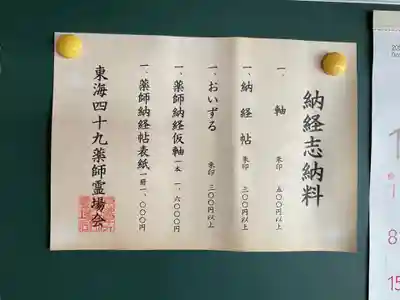 納経志納料
一、軸 朱印 五〇〇円以上
一、納経帖 朱印 三〇〇円以上
一、おいずる 朱印 三〇〇円以上
一、薬師納経仮軸 一本 一、六〇〇円
一、薬師納経帖表紙 一冊 一、〇〇〇円
東海四十九薬師霊場会
1
8
15